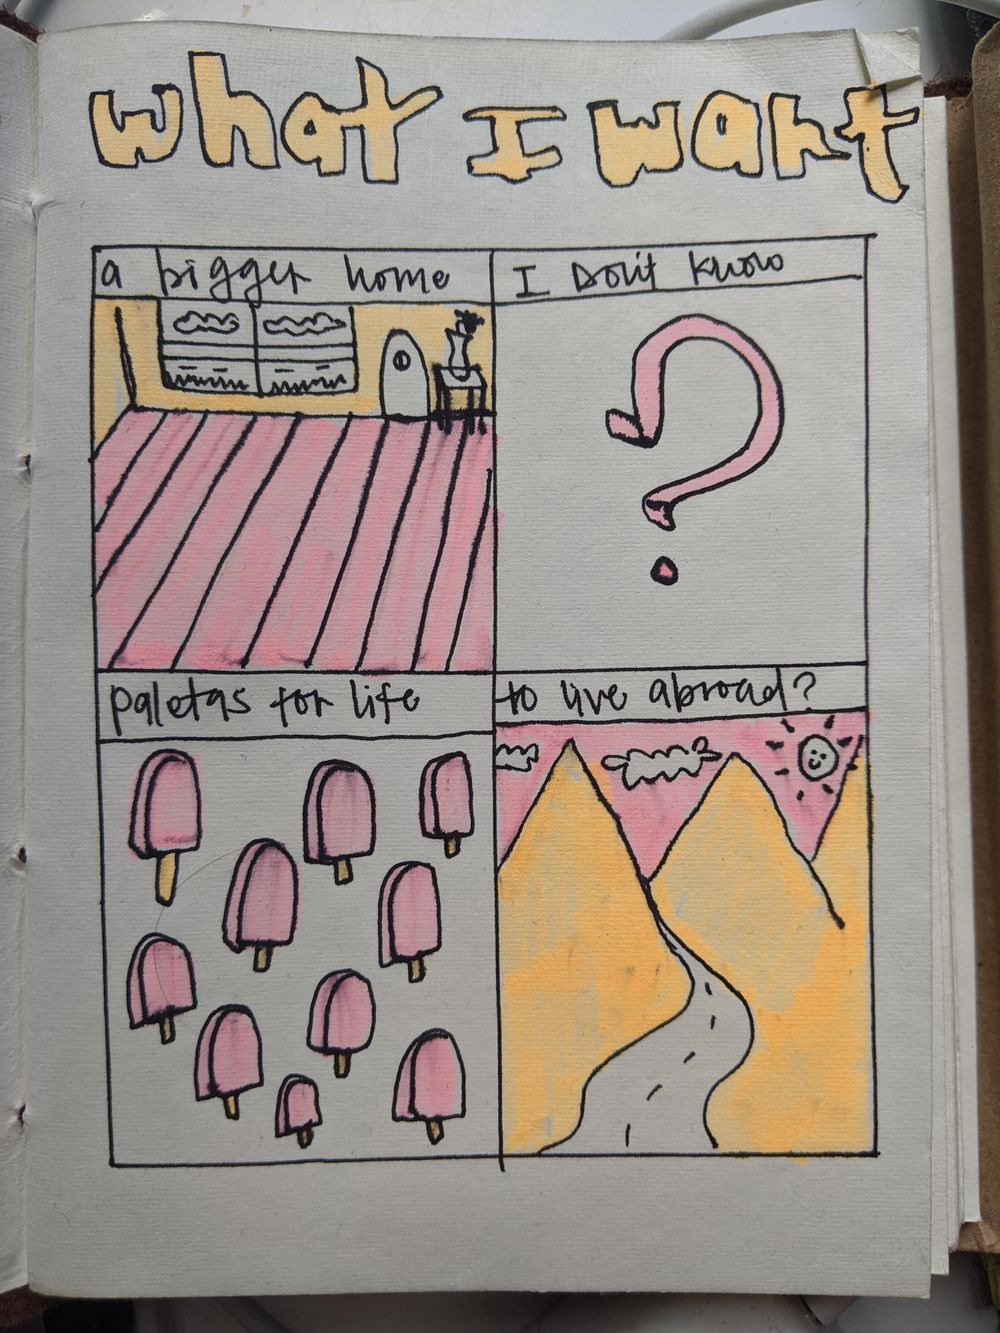 what I want
a bigger home
I Don't know
paletas for life
to live abroad?